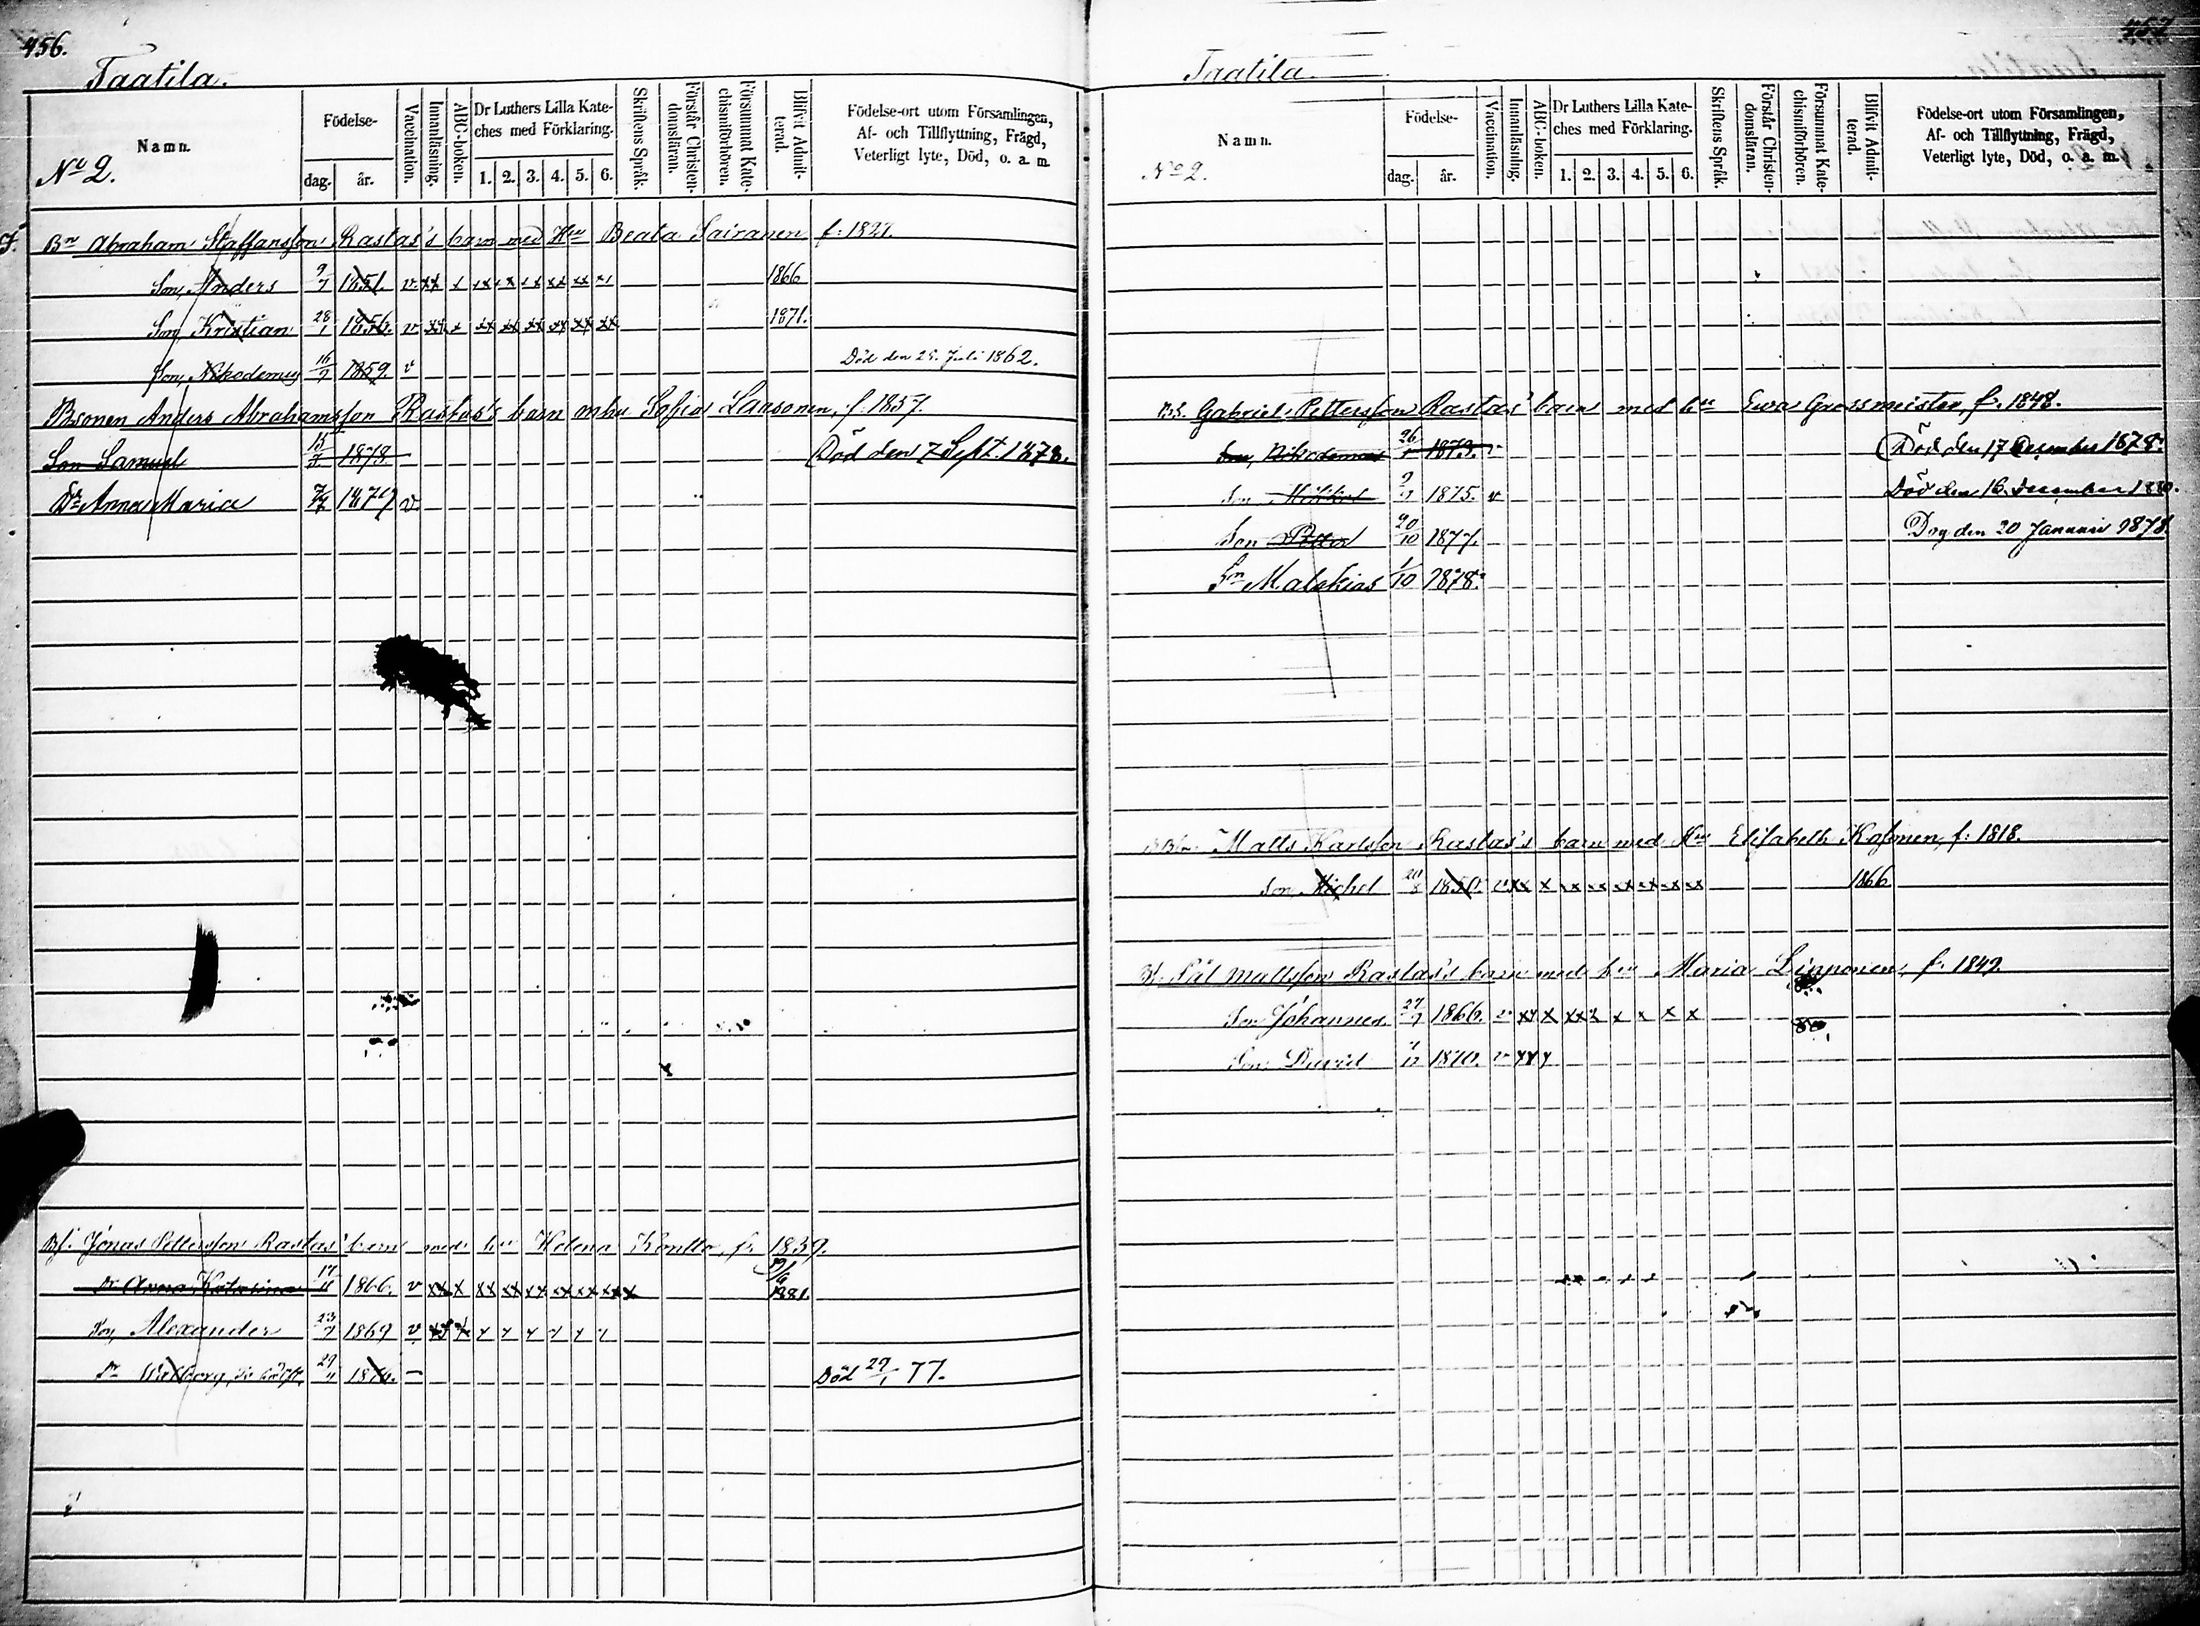 456.
Taatila.
Namn.
No 2.
Födelse-
dag.
år.
Vaccination.
Innanläsning.
ABC-boken.
Dr Luthers Lilla Kate-
ches med Förklaring.
1. 2. 3. 4. 5. 6.
Skriftens Språk.
Förstår Christen-
domsläran.
Försummat Kate-
chismiförhören.
Blifvit Admit-
terad.
Födelse-ort utom Församlingen,
Af- och Tillflyttning, Frägd,
Veterligt lyte, Död, o. a. m.
Bn Abraham Staffansson Rastas's barn med Hu Beata Sairanen f. 1827.
Son, Anders 9/7 1851. v xx x xx xx xx xx xx 1866
Son, Kristian 28/1 1856. v xx x xx xx xx xx xx xx 1871.
Son, Nikodemus 16/7 1859. v Död den 25. Juli 1862.
Bsonen Anders Abrahamsson Rastas's barn m hu Sofia Laasonen, f. 1857.
Son Samuel 1878. Död den 7 Sept. 1878.
Dr Anna Maria 1879 v.
Bf. Jonas Pettersson Rastas' barn med hu Helena Kontto, f. 1839.
Dr Anna Katarina 17/11 1866. v xx x xx xx xx xx xx xx x 1881.
Son, Alexander 23/7 1869 v xx x x x x x x x
Dr Walborg, 29/11 1876. — Död 29/1 77.
457.
Taatila.
Namn.
No 2.
Födelse-
dag.
år.
Vaccination.
Innanläsning.
ABC-boken.
Dr Luthers Lilla Kate-
ches med Förklaring.
1. 2. 3. 4. 5. 6.
Skriftens Språk.
Förstår Christen-
domsläran.
Försummat Kate-
chismiförhören.
Blifvit Admit-
terad.
Födelse-ort utom Församlingen,
Af- och Tillflyttning, Frägd,
Veterligt lyte, Död, o. a. m.
Gabriel Pettersson Rastas' barn med hu Ewa Grossmeister, f. 1848.
Son, Nikodemus 26 1873. v Död den 17 December 1878.
Son Mikkel 9 1875. v Död den 16. December 1880.
Son Petter 20/10 1877. Dog den 20 Januarii 1878.
Sn Malakias 1/10 1878.
Matts Karlsson Rastas's barn med Hu Elisabeth Kosonen, f. 1818.
Son, Michel 20/8 1850. v xx x xx xx xx xx xx xx 1866
Pål Mattsson Rastas's barn med hu Maria Linnonen, f. 1849.
Son Johannes 27/7 1866. v xx x xx x x x x x
Son David 1870. v xx x